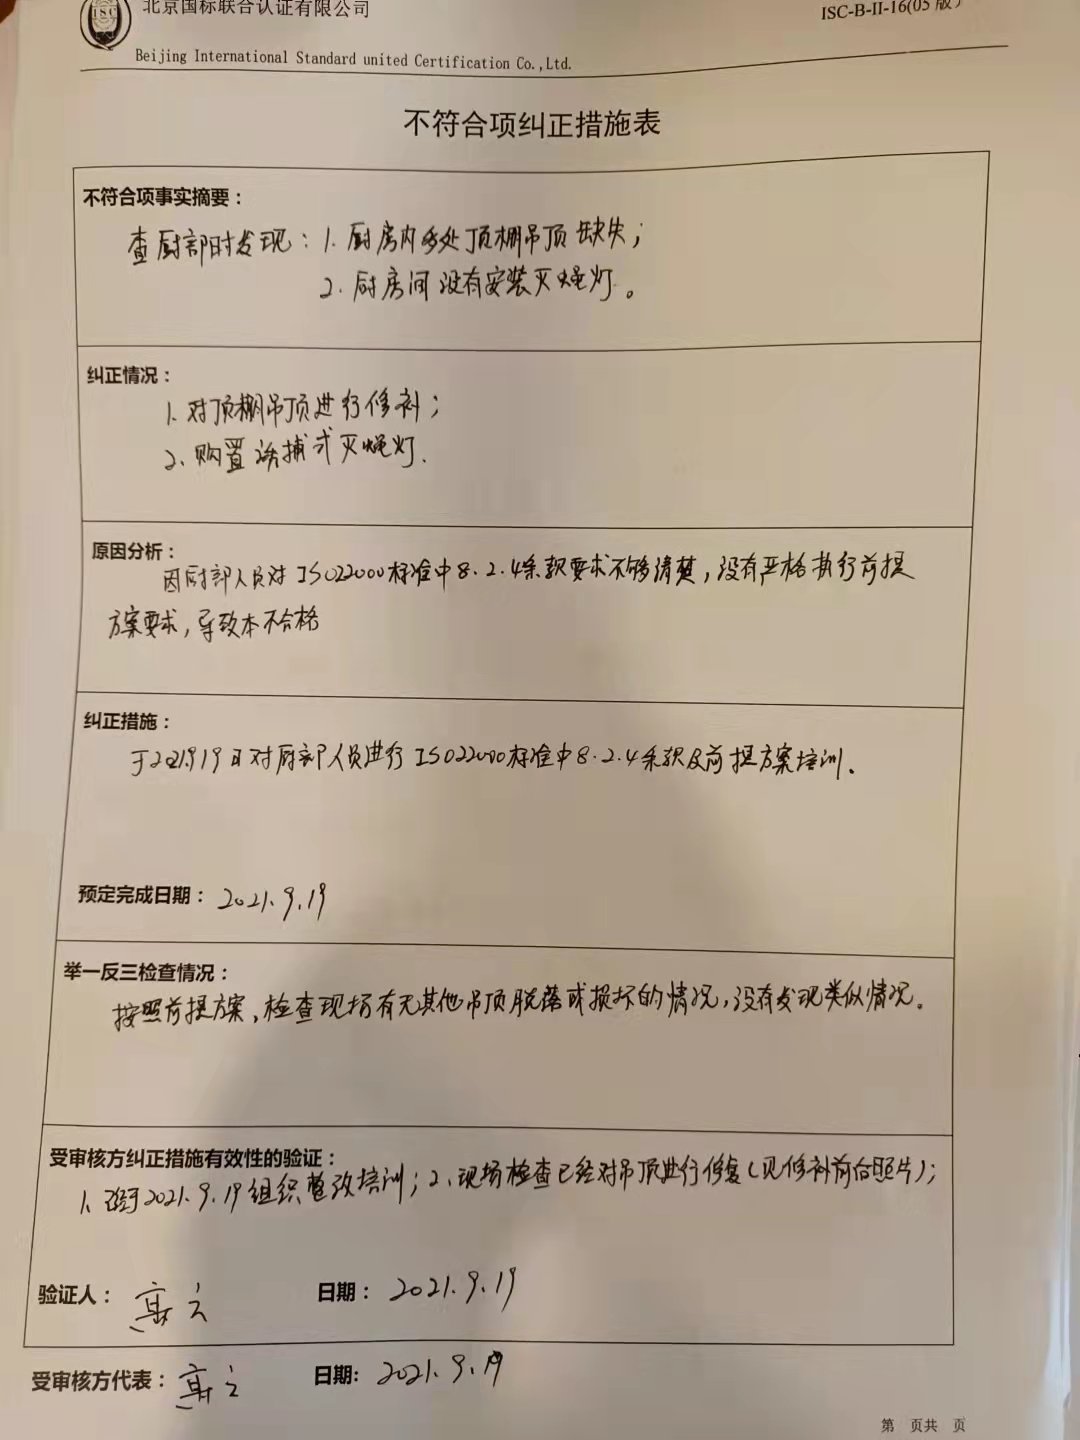 北京国标联合认证有限公司
ISC-B-II-16(05版)
ISC
Beijing International Standard united Certification Co.,Ltd.
不符合项纠正措施表
不符合项事实摘要：
查厨部时发现：1. 厨房内多处顶棚吊顶缺失；
2. 厨房间没有安装灭蝇灯。
纠正情况：
1. 对顶棚吊顶进行修补；
2、购置诱捕式灭蝇灯.
原因分析：
因厨部人员对ISO22000标准中8.2.4条款要求不够清楚，没有严格执行前提
方案要求，导致本不合格
纠正措施：
于2021.9.19日对厨部人员进行ISO22000标准中8.2.4条款及前提方案培训.
预定完成日期：2021.9.19
举一反三检查情况：
按照前提方案，检查现场有无其他吊顶脱落或损坏的情况，没有发现类似情况。
受审核方纠正措施有效性的验证：
1、已于2021.9.19组织整改培训；2、现场检查已经对吊顶进行修复(见修补前后照片)；
验证人： 日期：2021.9.19
受审核方代表： 日期：2021.9.19
第 页共 页